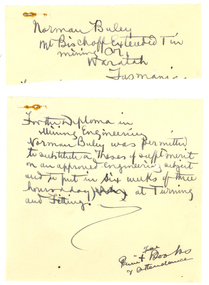 Norman Buley
Mt Bischoff Extended Tin
Mining Co
Waratah
Tasmania
For the Diploma in
Mining Engineering
Norman Buley was permitted
to substitute a Theses of supplement
on an approved engineering subject
and to put in six weeks of three
hours a day at Turning
and Fitting.
& attendance